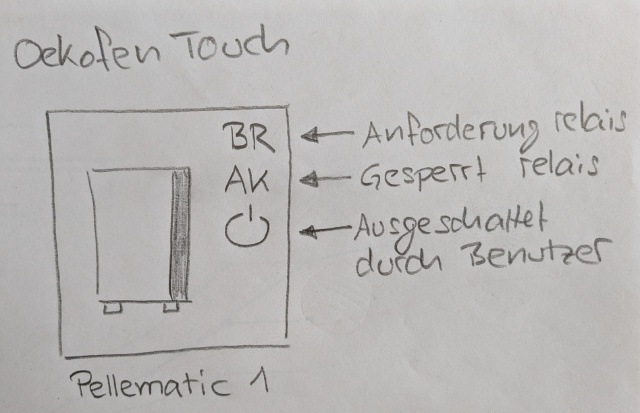 Oekofen Touch
BR ← Anforderung relais
AK ← Gesperrt relais
← Ausgeschaltet
durch Benutzer
Pellematic 1